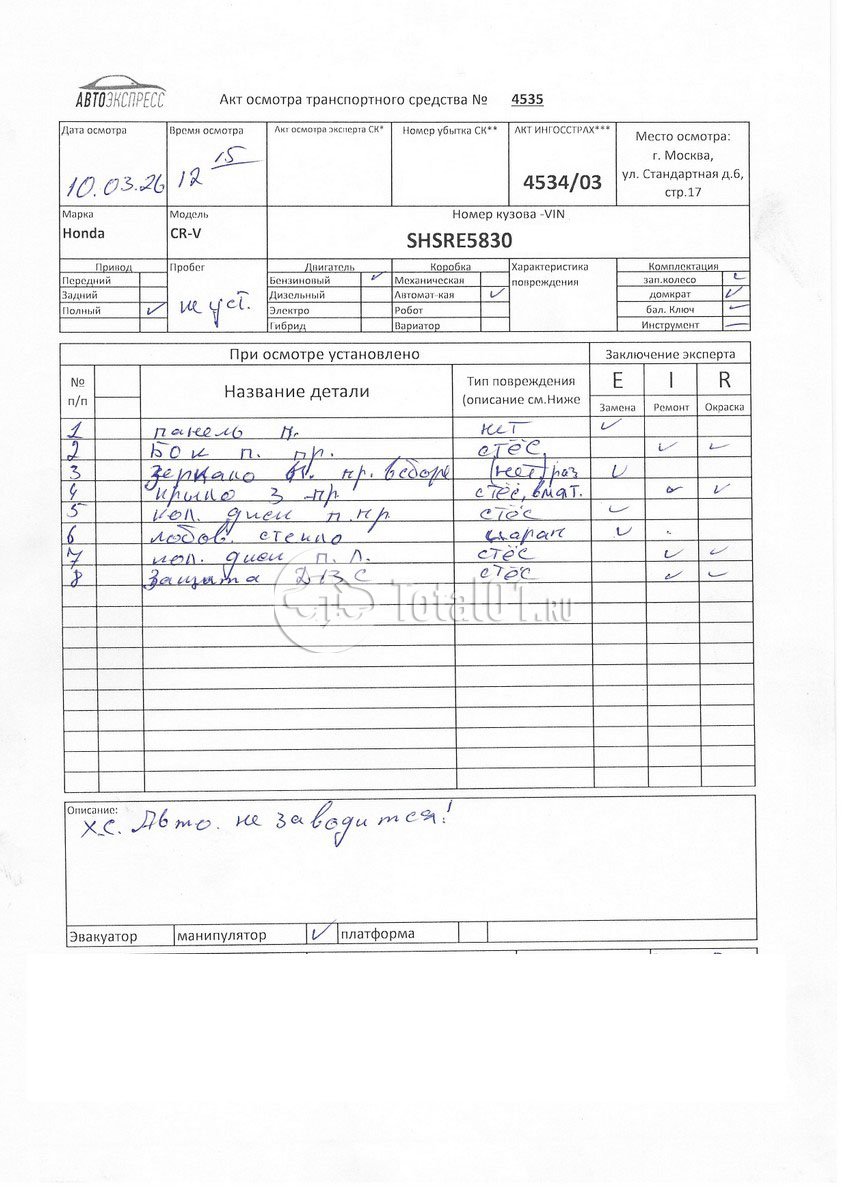 АВТОЭКСПРЕСС
Акт осмотра транспортного средства № 4535
Дата осмотра
10.03.26
Время осмотра
12 15
Акт осмотра эксперта СК*
Номер убытка СК**
АКТ ИНГОССТРАХ***
4534/03
Место осмотра:
г. Москва,
ул. Стандартная д.6,
стр.17
Марка
Honda
Модель
CR-V
Номер кузова -VIN
SHSRE5830
Привод
Передний
Задний
Полный ✓
Пробег
не уст.
Двигатель
Бензиновый ✓
Дизельный
Электро
Гибрид
Коробка
Механическая
Автомат-кая ✓
Робот
Вариатор
Характеристика
повреждения
Комплектация
зап.колесо ✓
домкрат ✓
бал. Ключ ✓
Инструмент —
При осмотре установлено
Заключение эксперта
№
п/п
Название детали
Тип повреждения
(описание см.Ниже
E I R
Замена Ремонт Окраска
1 панель п. нет ✓
2 Бок п. пр. стёс ✓ ✓
3 зеркало п. пр. в сборе (нет) раз ✓
4 крыло з пр стёс, вмят. ✓ ✓
5 кол. диск п.пр стёс ✓
6 лобов. стекло царап ✓
7 кол. диск п. л. стёс ✓ ✓
8 Защита ДВС стёс ✓ ✓
Total01.RU
Описание:
х.с. Авто. не заводится!
Эвакуатор манипулятор ✓ платформа